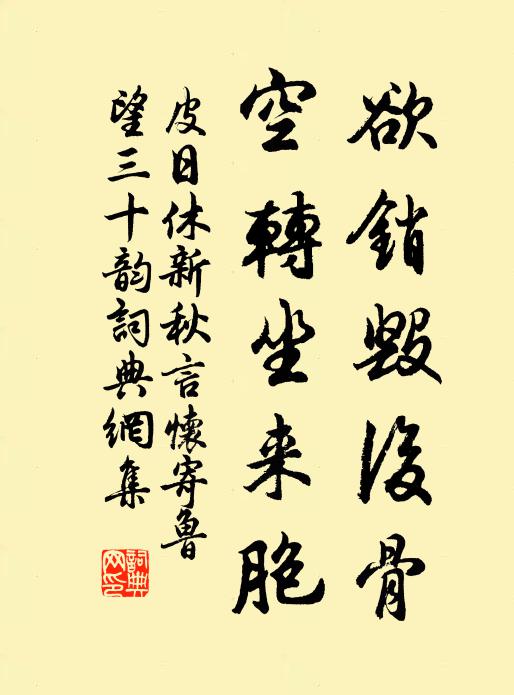 欲銷毀後骨
空轉坐来胞
皮日休新秋言懷寄魯
望三十韵詞典網集
詞典
网印